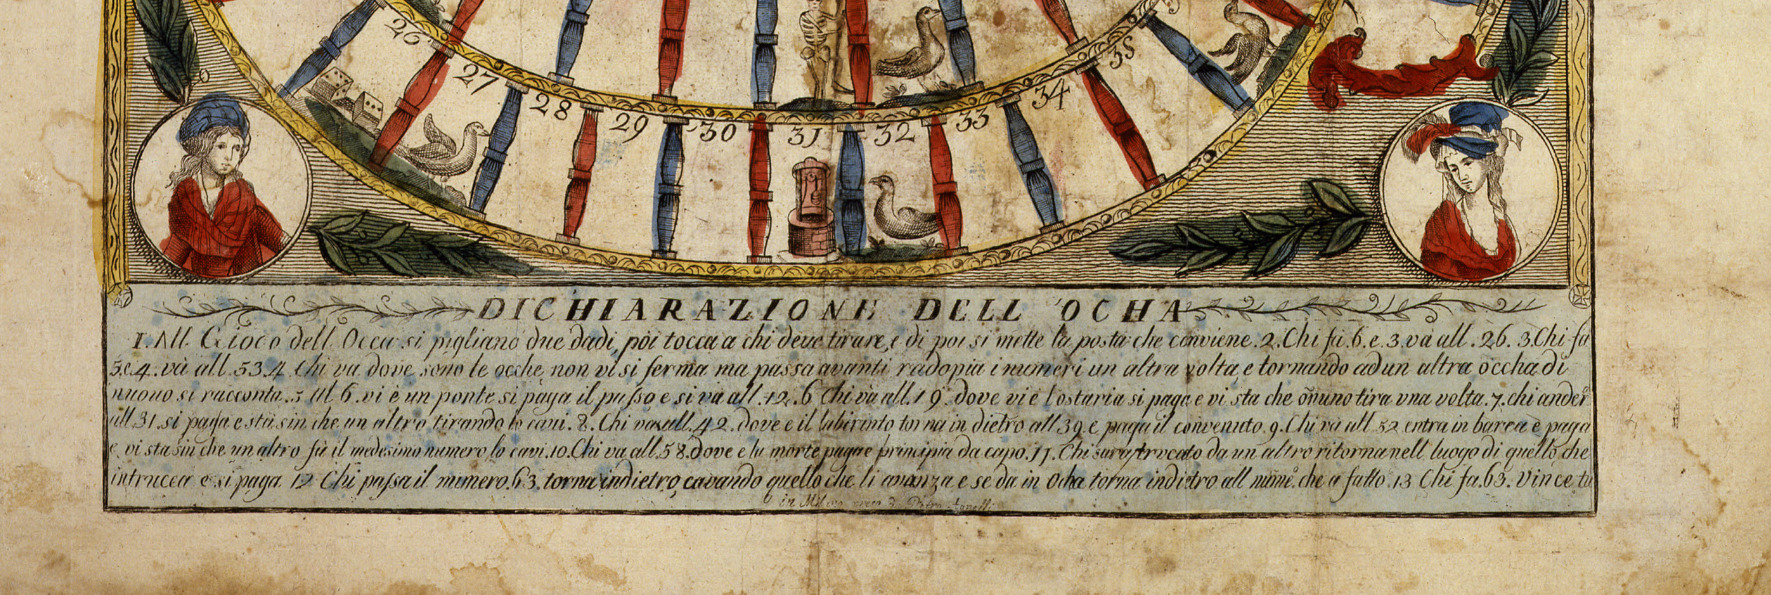 26
27
28
29
30
31
32
33
34
35
DICHIARAZIONE DELL'OCHA
1. All Gioco dell Occa si pigliano due dadi, poi tocca a chi deve tirare, e di poi si mette la posta che conviene. 2. Chi fa. 6. e. 3. va all. 26. 3. Chi fa
5. e 4. va all. 53. 4. Chi va dove sono le ocche, non vi si ferma ma passa avanti radopia i numeri un altra volta, e tornando ad un altra occha di
nuovo si racconta. 5. al 6. vi è un ponte si paga il passo e si va all. 12. 6 Chi va all. 19. dove vi è l'ostaria si paga e vi sta che ognuno tira una volta. 7. chi anderà
all 31. si paga e sta sin che un altro tirando lo cavi. 8. Chi va all. 42. dove e il labirinto torna in dietro all. 39. e paga il convenuto. 9. Chi va all 52. entra in barca e paga
e vi sta sin che un altro fa il medesimo numero lo cavi. 10. Chi va all. 58. dove e la morte paga e principia da capo. 11. Chi sara trovato da un altro ritorna nell luogo di quello che
intruccea e si paga. 12 Chi passa il numero. 63. torna indietro, cavando quello che li avanza e se da in Ocha torna indietro all num.º che a fatto. 13 Chi fa. 63. Vince tu
in Milano